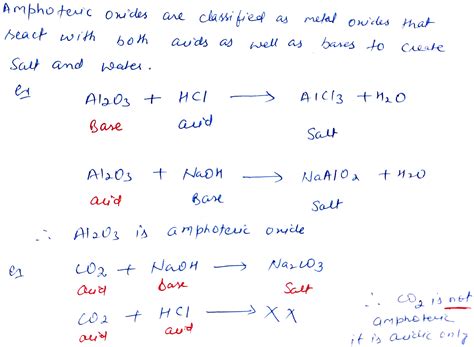 Amphoteric oxides are classified as metal oxides that
react with both acids as well as bases to create
Salt and water.
ex
Al2O3 + HCl → AlCl3 + H2O
Base acid Salt
Al2O3 + NaOH → NaAlO2 + H2O
acid Base Salt
∴ Al2O3 is amphoteric oxide
ex CO2 + NaOH → Na2CO3
acid base Salt
CO2 + HCl → X X
acid acid
∴ CO2 is not
amphoteric
it is acidic only